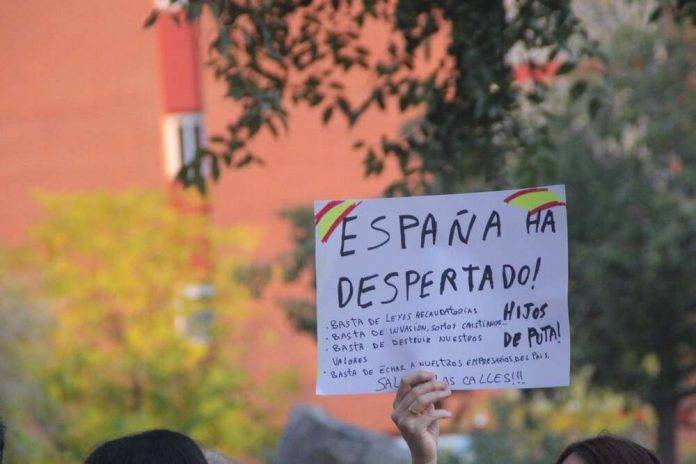 ESPAÑA HA
DESPERTADO!
· BASTA DE LEYES RECAUDATORIAS
· BASTA DE INVASIÓN, SOMOS CRISTIANOS...
· BASTA DE DESTRUIR NUESTROS
VALORES
· BASTA DE ECHAR A NUESTROS EMPRESARIOS DEL PAIS.
HIJOS
DE PUTA!
LAS CALLES!!!